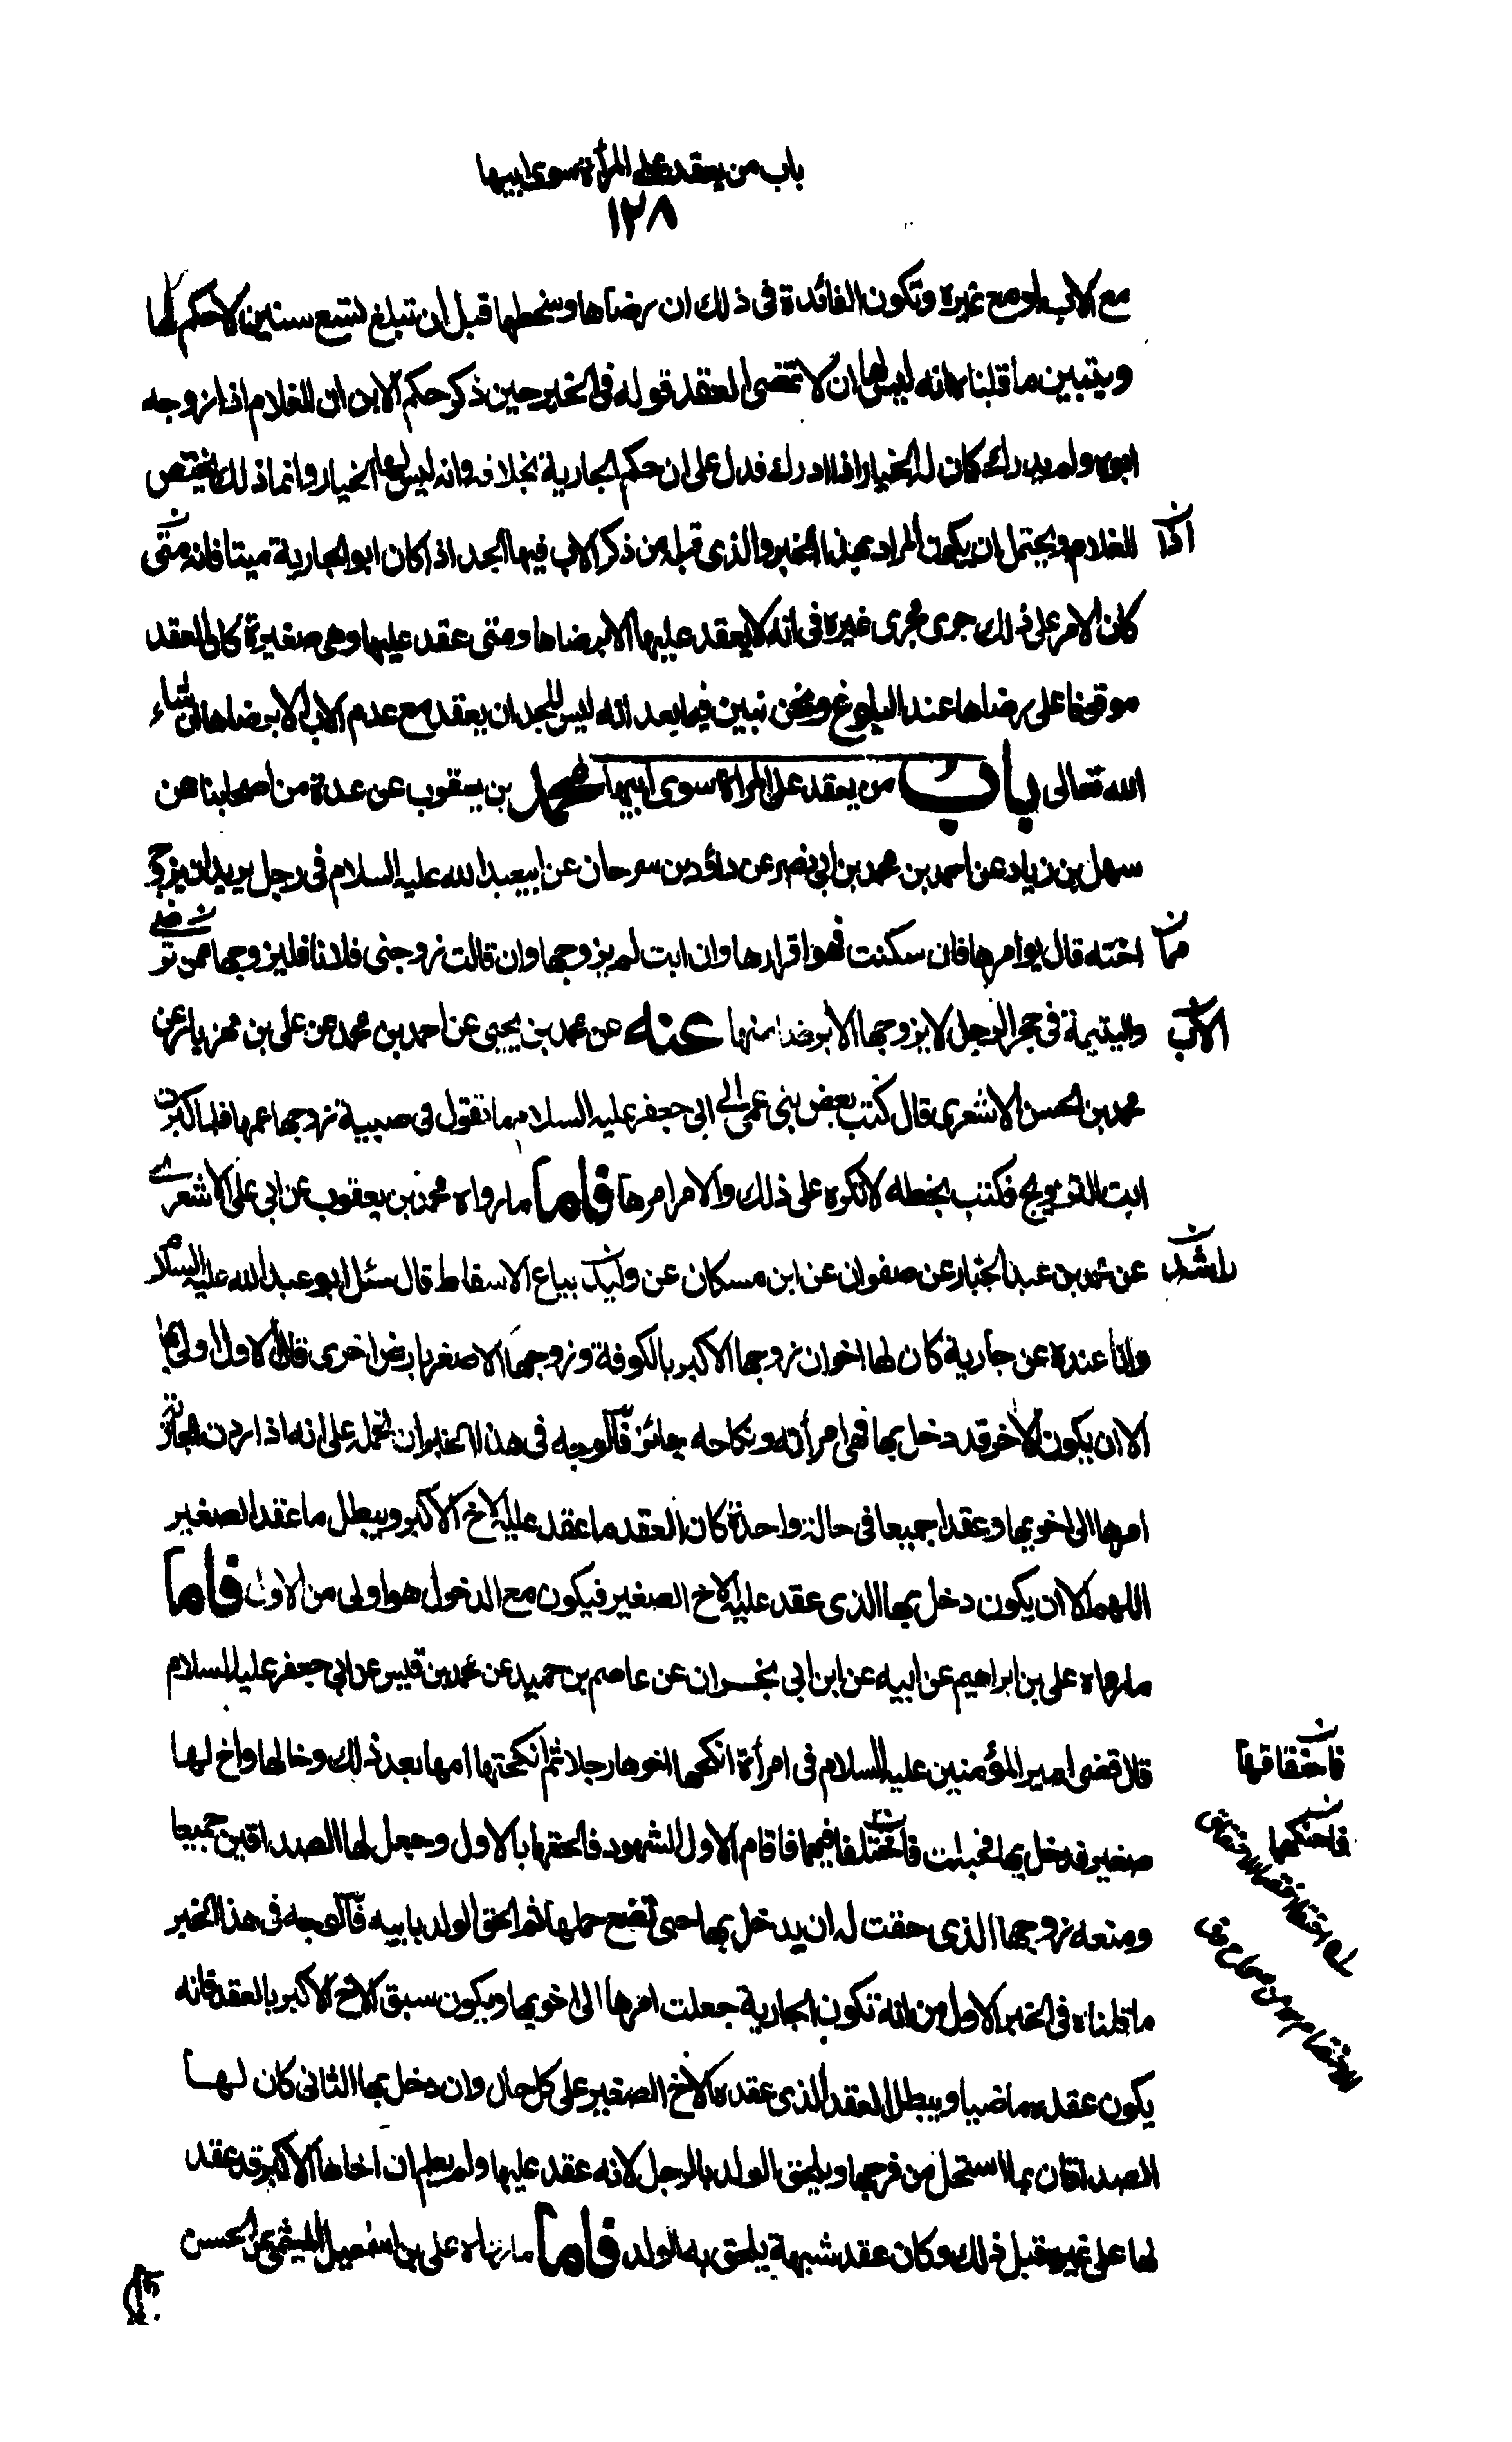 باب من يعقد على المرأة سوى ابيها
١٢٨
مع الاب او مع غيره وتكون الفائدة فى ذلك ان رضاها وسخطها قبل ان تبلغ لتسع سنين لا حكم لها
ويتبين ما قلناه انه ليس لها ان لا تمضى العقد قوله فى الخبر حين ذكر حكم الابن ان الغلام اذا زوجه
ابوه ولم يدرك كان له الخيار اذا ادرك فدل على ان حكم الجارية بخلافه وانه ليس لها الخيار وانما ذلك يختص
الغلام ويحتمل ان يكون المراد بهذا الخبر والذى قبله من ذكر الاب فيها الجد اذا كان ابو الجارية ميتا فانه متى
اذا ن
كان الامر على ذلك جرى مجرى غيره فى انه لا يعقد عليها الا برضاها ومتى عقد عليها وهى صغيرة كان العقد
موقوفا على رضاها عند البلوغ ونحن نبين فيما بعد انه ليس للجد ان يعقد مع عدم الاب الا برضاها ان شاء
الله تعالى باب من يعقد على المرأة سوى ابيها محمد بن يعقوب عن عدة من اصحابنا عن
سهل بن زياد عن احمد بن محمد بن ابى نصر عن داؤد بن سرحان عن ابيعبد الله عليه السلام فى رجل يريد ان يزوج
اخته قال يوامرها فان سكتت فهو اقرارها وان ابت لم يزوجها وان قالت زوجنى فلانا فليزوجها ممن ترضى
واليتيمة فى حجر الرجل لا يزوجها الا برضا منها عنه عن محمد بن يحيى عن احمد بن محمد عن على بن مهزيار عن
محمد بن الحسن الاشعرى قال كتب بعض بنى عمى الى ابى جعفر عليه السلام ما تقول فى صبية زوجها عمها فلما كبرت
ابت التزويج فكتب بخطه لا تكره على ذلك والامر امرها فاما ما رواه محمد بن يعقوب عن ابى على الاشعرى
عن محمد بن عبد الجبار عن صفوان عن ابن مسكان عن وليد بياع الاسقاط قال سئل ابو عبد الله عليه السلام
وانا عنده عن جارية كان لها اخوان زوجها الاكبر بالكوفة وزوجها الاصغر بارض اخرى قال الاول اولى بها
الا ان يكون الاخر قد دخل بها فهى امرأته ونكاحه جائز فالوجه فى هذا الخبر ان نحمله على انه اذا ردت الجارية
امرها الى اخويها وعقدا جميعا فى حالة واحدة كان العقد ما عقد عليه الاخ الاكبر ويبطل ما عقد الصغير
اللهم الا ان يكون دخل بها الذى عقد عليه الاخ الصغير فيكون مع الدخول هو اولى من الاول فاما
ما رواه على بن ابراهيم عن ابيه عن ابن ابى نجران عن عاصم بن حميد عن محمد بن قيس عن ابى جعفر عليه السلام
قال قضى امير المؤمنين عليه السلام فى امرأة انكحها اخوها رجلا ثم انكحتها امها بعد ذلك وخالها واخ لها
صغير فدخل بها فحبلت فاختلفا فيها فاقام الاول الشهود فالحقها بالاول وجعل لها الصداقين جميعا
ومنعه زوجها الذى حقت له ان يدخل بها حتى تضع حملها ثم الحق الولد بابيه فالوجه فى هذا الخبر
ما قلناه فى الخبر الاول من انه تكون الجارية جعلت امرها الى اخويها ويكون سبق الاخ الاكبر بالعقد فانه
يكون عقده ماضيا ويبطل العقد الذى عقده الاخ الصغير على كل حال وان دخل بها الثانى كان لها
الصداقان بما استحل من فرجها ويلحق الولد بالرجل لانه عقد عليها ولم يعلم ان اخاها الاكبر قد عقد
لها على غيره قبل ذلك وكان عقد شبهة يلحق به الولد فاما ما رواه على بن اسمعيل الميثمى عن الحسن